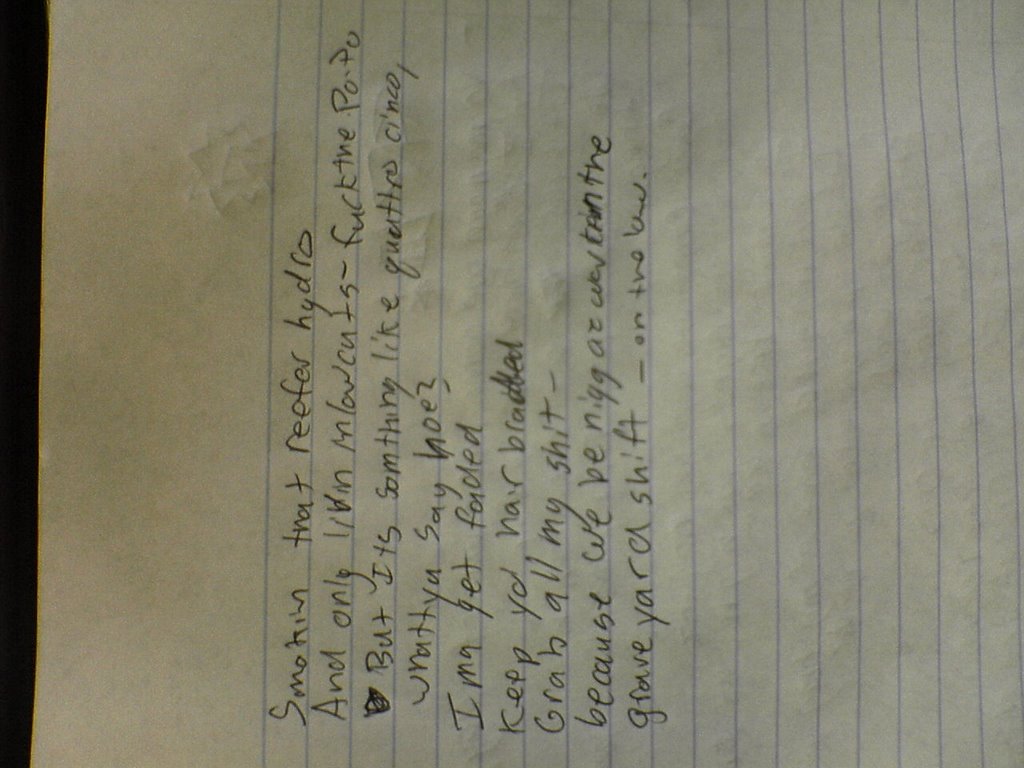 Smokin that reefer hydro
And only livin in lowcuts - fuck the Po.Po
But Its somthing like quattro cinco,
whattyu say hoe?
Ima get faded
Keep yo hair braided
Grab all my shit -
because we be nigg az workin the
grave yard shift - on the low.